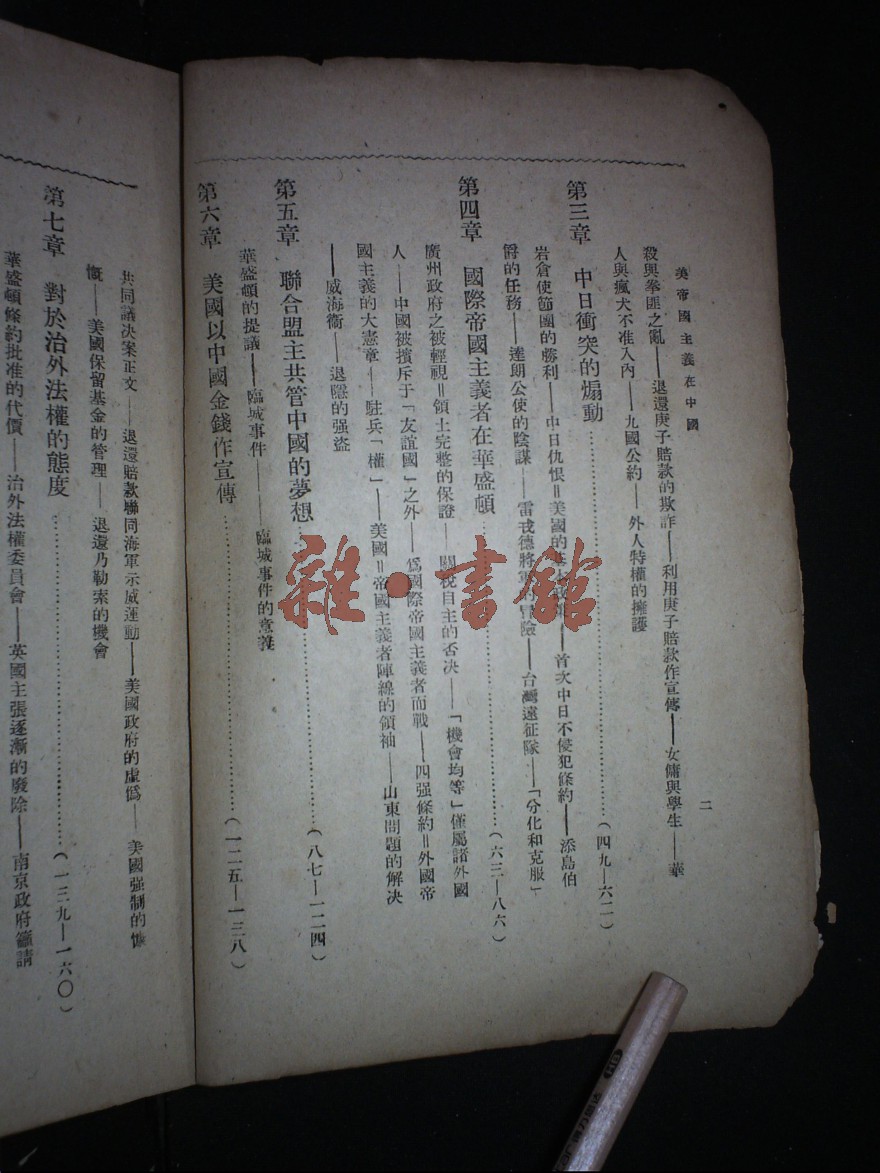 美帝國主義在中國
二
殺與拳匪之亂——退還庚子賠款的欺詐——利用庚子賠款作宣傳——女傭與學生——華
人與瘋犬不准入內——九國公約——外人特權的擁護
第三章 中日衝突的煽動……(四九—六二)
岩倉使節團的勝利——中日仇恨＝美國的基——首次中日不侵犯條約——添島伯
爵的任務——達朗公使的陰謀——雷戒德將軍冒險——台灣遠征隊——「分化和克服」
第四章 國際帝國主義者在華盛頓……(六三—八六)
廣州政府之被輕視＝領土完整的保證——關稅自主的否决——「機會均等」僅屬諸外國
人——中國被擯斥于「友誼國」之外——爲國際帝國主義者而戰——四强條約＝外國帝
國主義的大憲章——駐兵「權」——美國＝帝國主義者陣線的領袖——山東問題的解決
——威海衞——退隱的强盜
第五章 聯合盟主共管中國的夢想……(八七—一二四)
華盛頓的提議——臨城事件——臨城事件的意義
第六章 美國以中國金錢作宣傳……(一二五—一三八)
共同議決案正文——退還賠款聯同海軍示威運動——美國政府的虛僞——美國强制的慷
慨——美國保留基金的管理——退還乃勒索的機會
第七章 對於治外法權的態度……(一三九—一六〇)
華盛頓條約批准的代價——治外法權委員會——英國主張逐漸的廢除——南京政府籲請
雜·書館